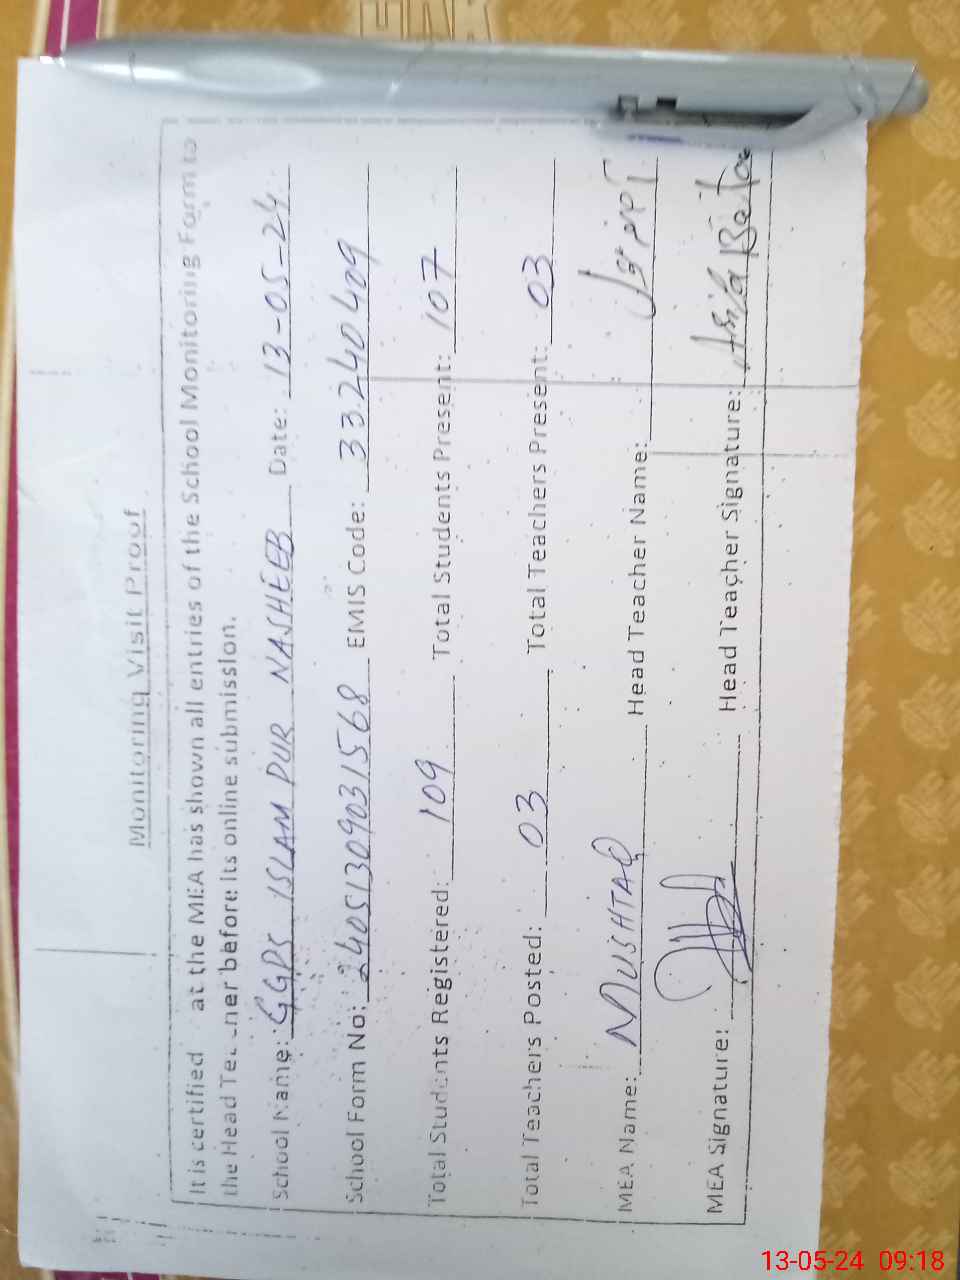 Monitoring Visit Proof
It is certified at the MEA has shown all entries of the School Monitoring Form to
the Head Te ner before its online submission.
School Name: GGPS ISLAM PUR NASHEEB Date: 13-05-24
School Form No: 24051309031568 EMIS Code: 33240409
Total Students Registered: 109 Total Students Present: 107
Total Teachers Posted: 03 Total Teachers Present: 03
MEA Name: MUSHTAQ Head Teacher Name:
MEA Signature: Head Teacher Signature:
13-05-24 09:18